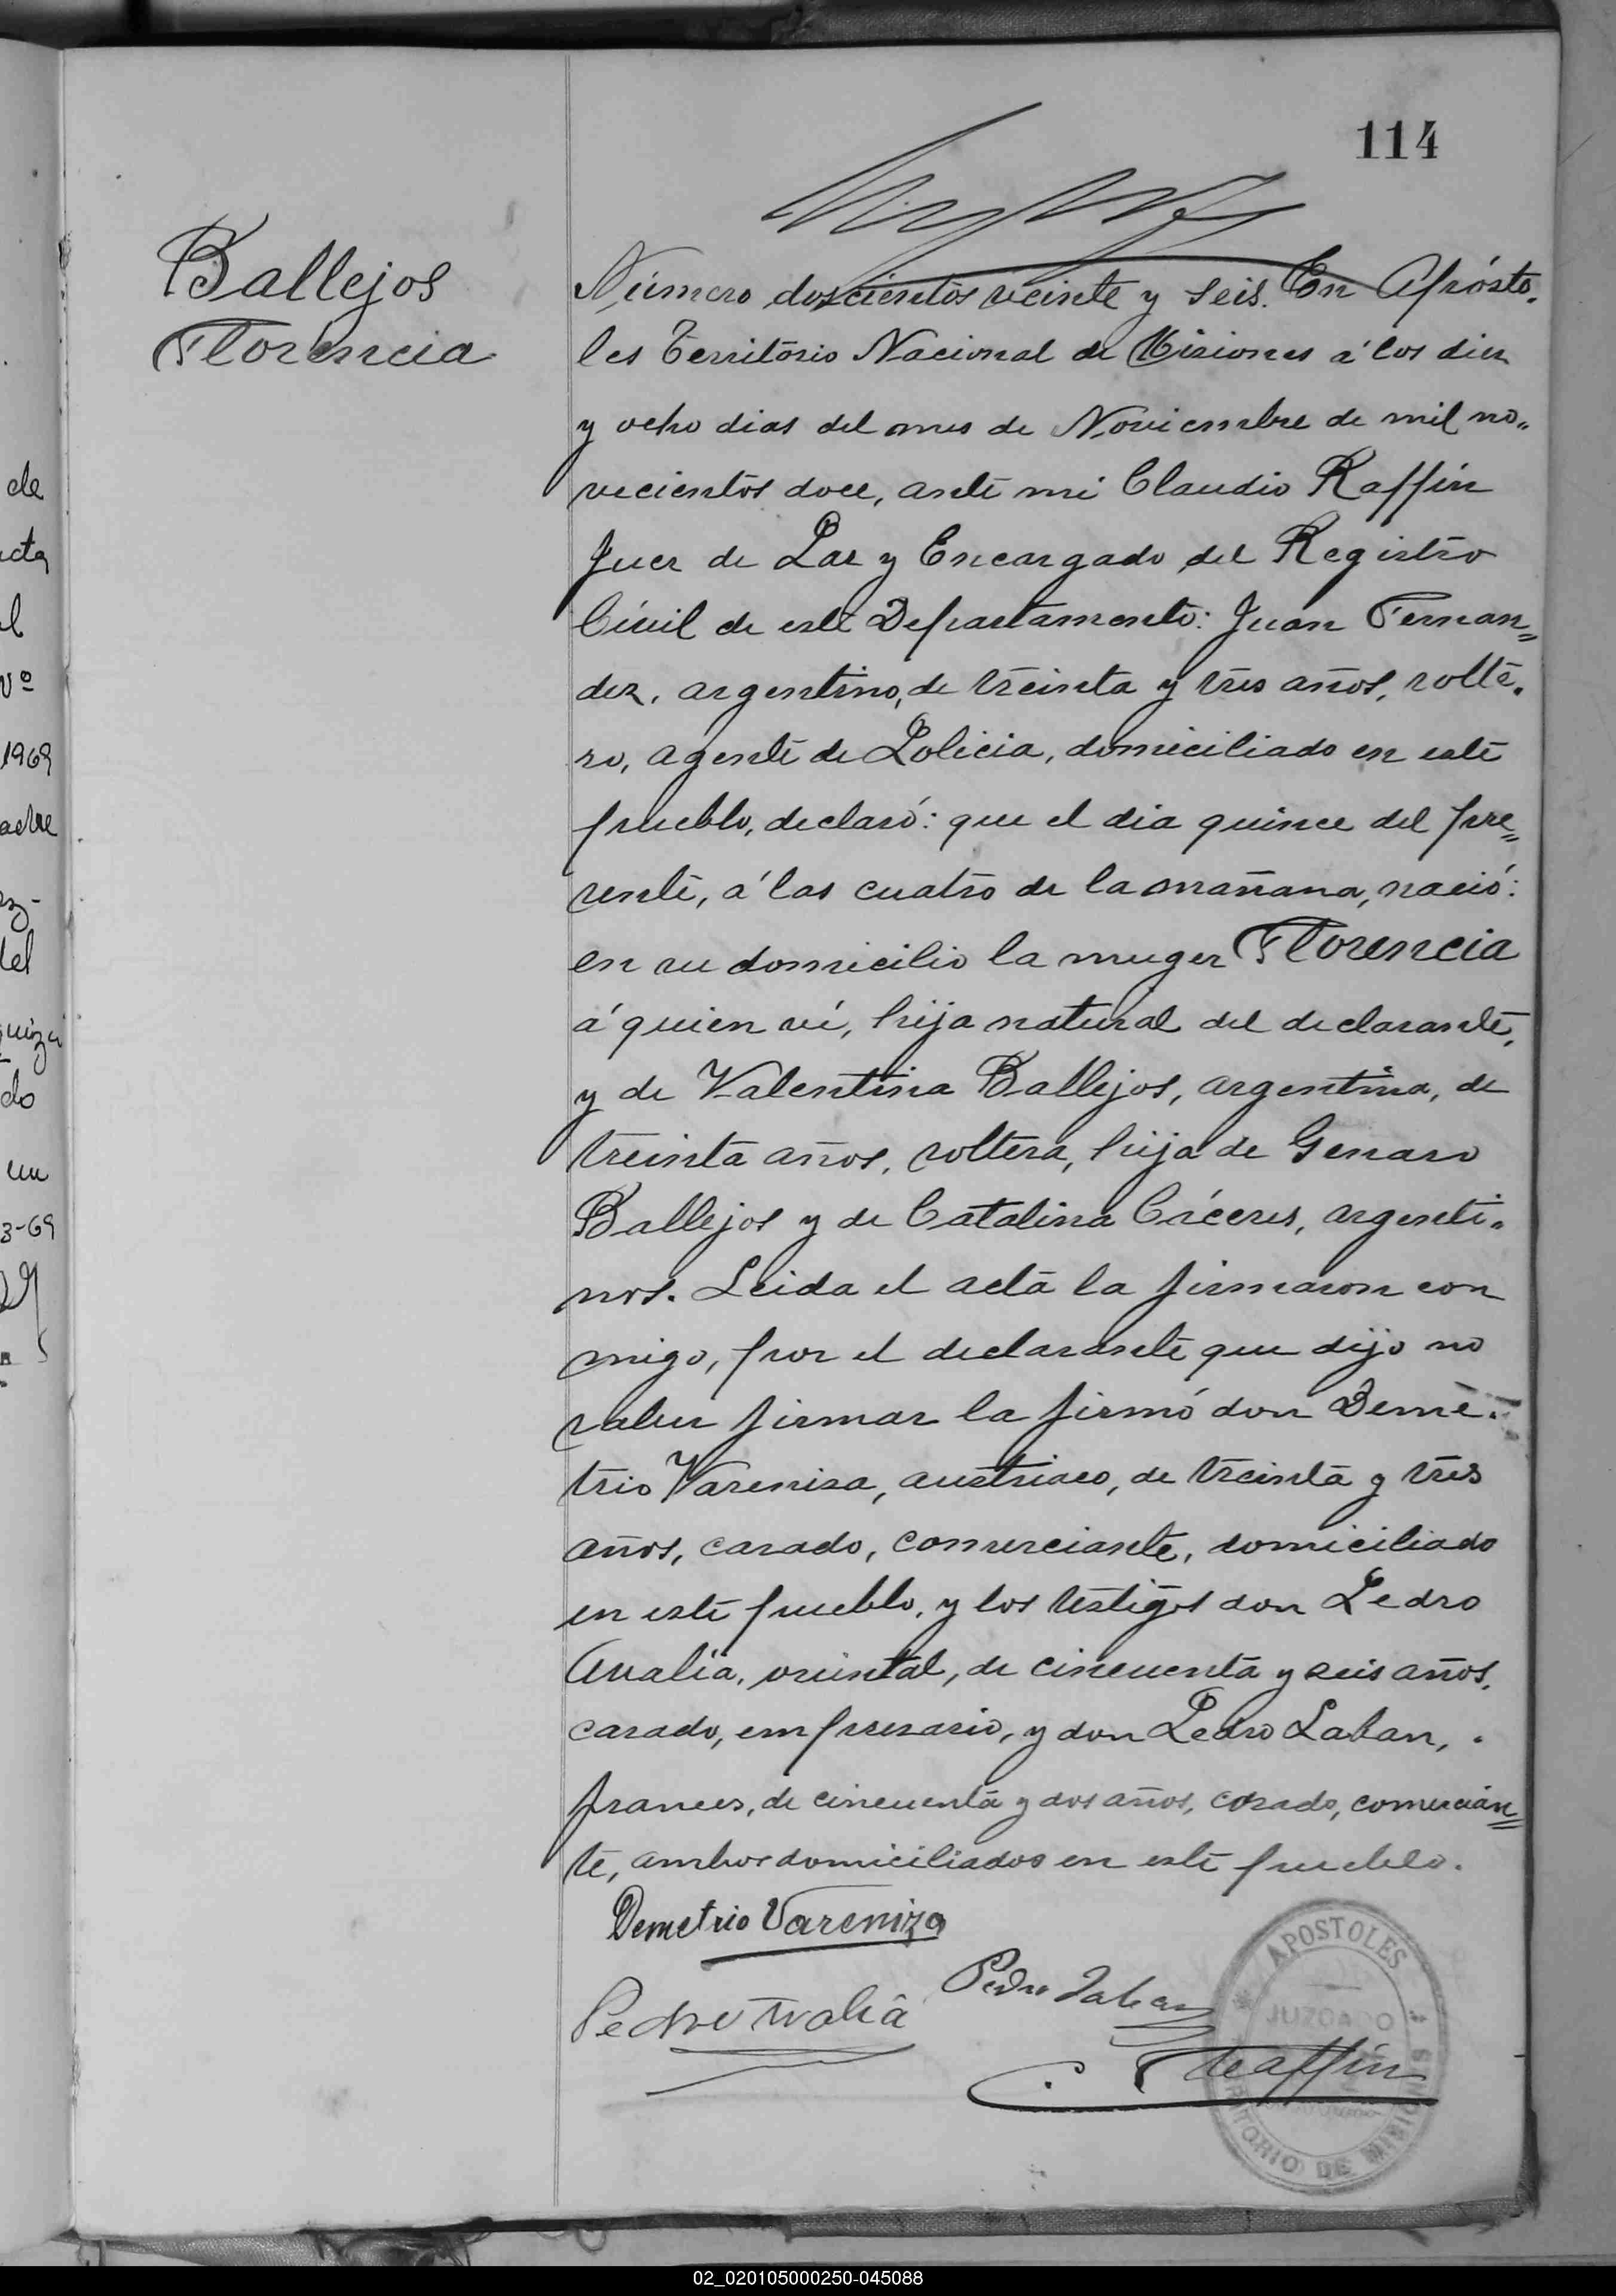 114
Ballejos
Florencia
Número doscientos veinte y seis. En Aposto-
les Territorio Nacional de Misiones á los diez
y ocho dias del mes de Noviembre de mil no-
vecientos doce, ante mi Claudio Raffin
Juez de Paz y Encargado del Registro
Civil de este Departamento: Juan Fernan=
dez, argentino, de treinta y tres años, solte-
ro, agente de Policia, domiciliado en este
pueblo, declaró: que el dia quince del pre=
sente, á las cuatro de la mañana, nació:
en su domicilio la muger Florencia
á quien ví, hija natural del declarante,
y de Valentina Ballejos, argentina, de
treinta años, soltera, hija de Genaro
Ballejos y de Catalina Cáceres, argenti-
nos. Leida el acta la firmaron con
migo, por el declarante que dijo no
saber firmar la firmó don Deme-
trio Vareniza, austriaco, de treinta y tres
años, casado, comerciante, domiciliado
en este pueblo, y los testigos don Pedro
Analia, oriental, de cincuenta y seis años,
casado, empresario, y don Pedro Laban,
frances, de cincuenta y dos años, casado, comercian=
te, ambos domiciliados en este pueblo.
Demetrio Vareniza
Pedro Laban
Pedro
C. Raffin
APOSTOLES
JUZGADO
TERRITORIO DE MISIONES
de
acta
el
Nº
1969
adre
del
do
un
3-69
02_020105000250-045088